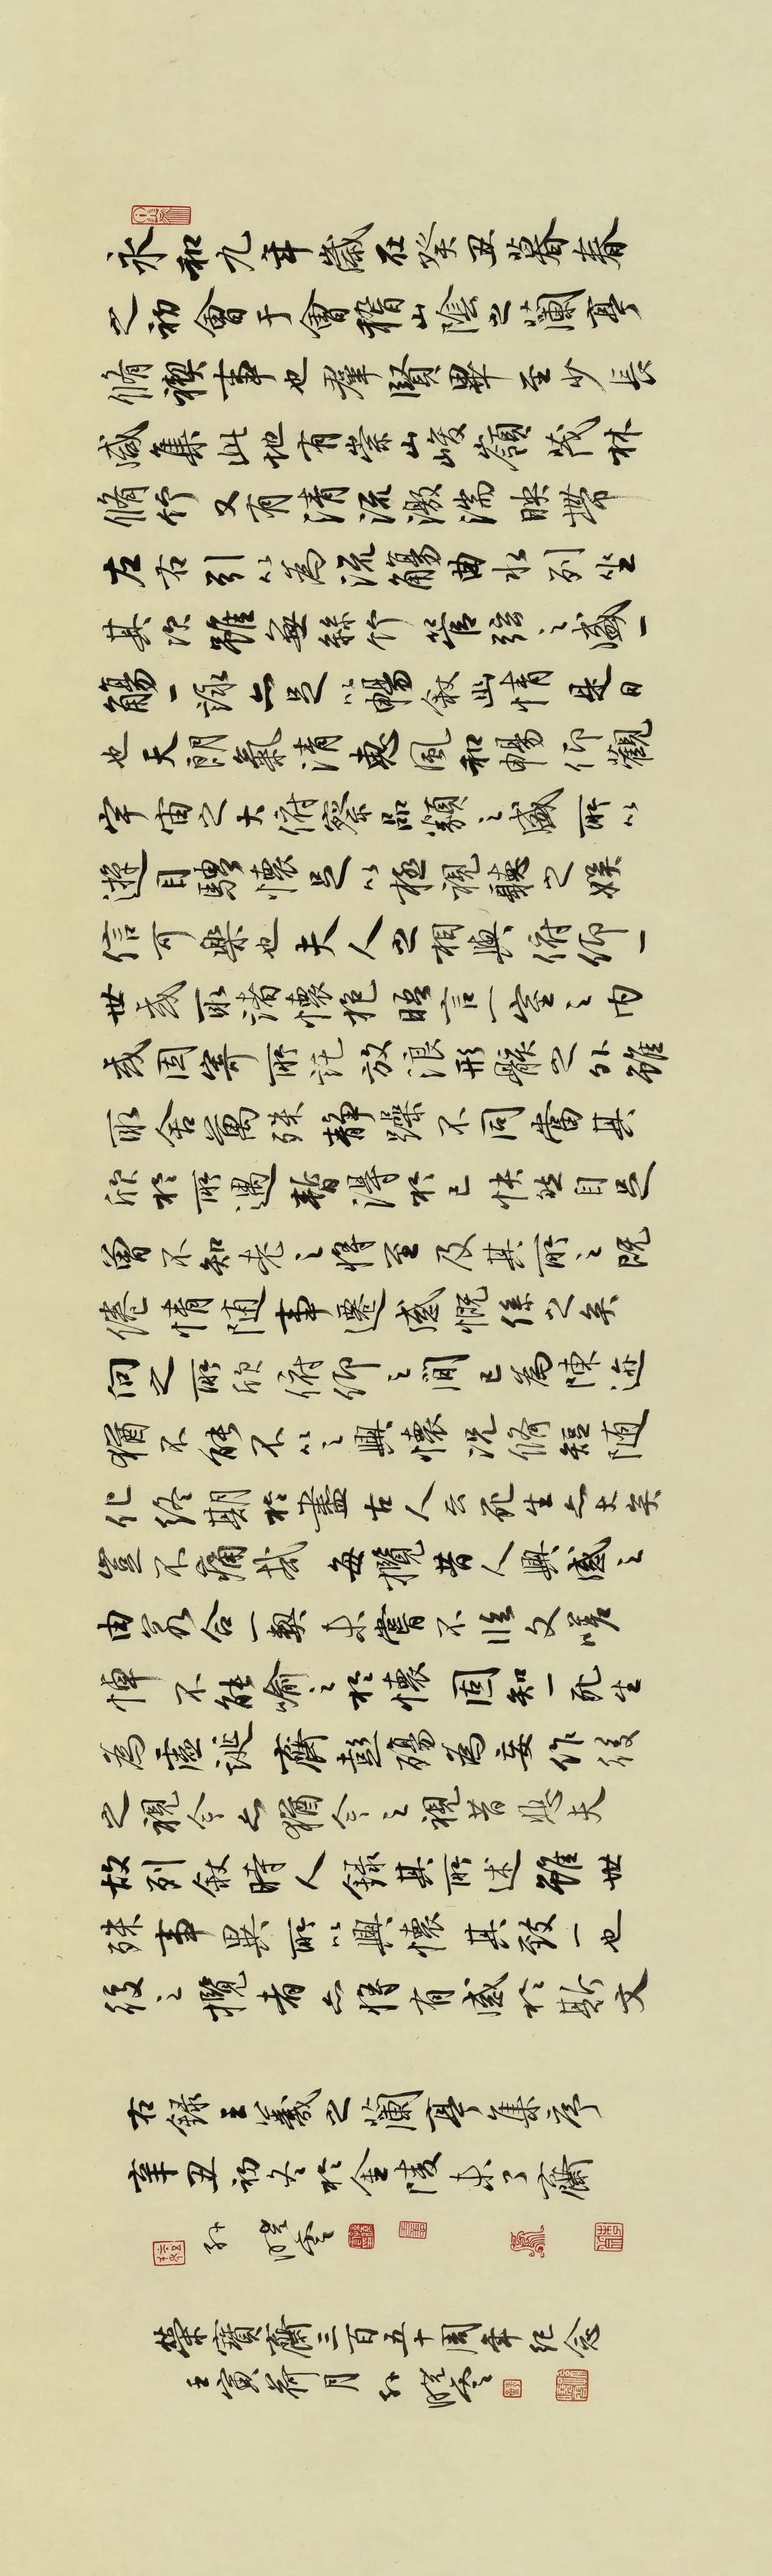 永和九年歲在癸丑暮春
之初會于會稽山陰之蘭亭
脩禊事也群賢畢至少長
咸集此地有崇山峻嶺茂林
脩竹又有清流激湍映帶
左右引以為流觴曲水列坐
其次雖無絲竹管弦之盛一
觴一詠亦足以暢敘幽情是日
也天朗氣清惠風和暢仰觀
宇宙之大俯察品類之盛所以
遊目騁懷足以極視聽之娛
信可樂也夫人之相與俯仰一
世或取諸懷抱晤言一室之内
或因寄所託放浪形骸之外雖
取舍萬殊靜躁不同當其
欣於所遇暫得於己快然自足
曾不知老之將至及其所之既
倦情隨事遷感慨係之矣
向之所欣俯仰之間已為陳迹
猶不能不以之興懷況脩短隨
化終期於盡古人云死生亦大矣
豈不痛哉每攬昔人興感之
由若合一契未嘗不臨文嗟
悼不能喻之於懷固知一死生
為虛誕齊彭殤為妄作後
之視今亦猶今之視昔悲夫
故列敘時人錄其所述雖世
殊事異所以興懷其致一也
後之攬者亦將有感於斯文
右錄王羲之蘭亭集序
辛丑初冬於金陵未了齋
孫曉雲
榮寶齋三百五十周年紀念
壬寅荷月孫曉雲